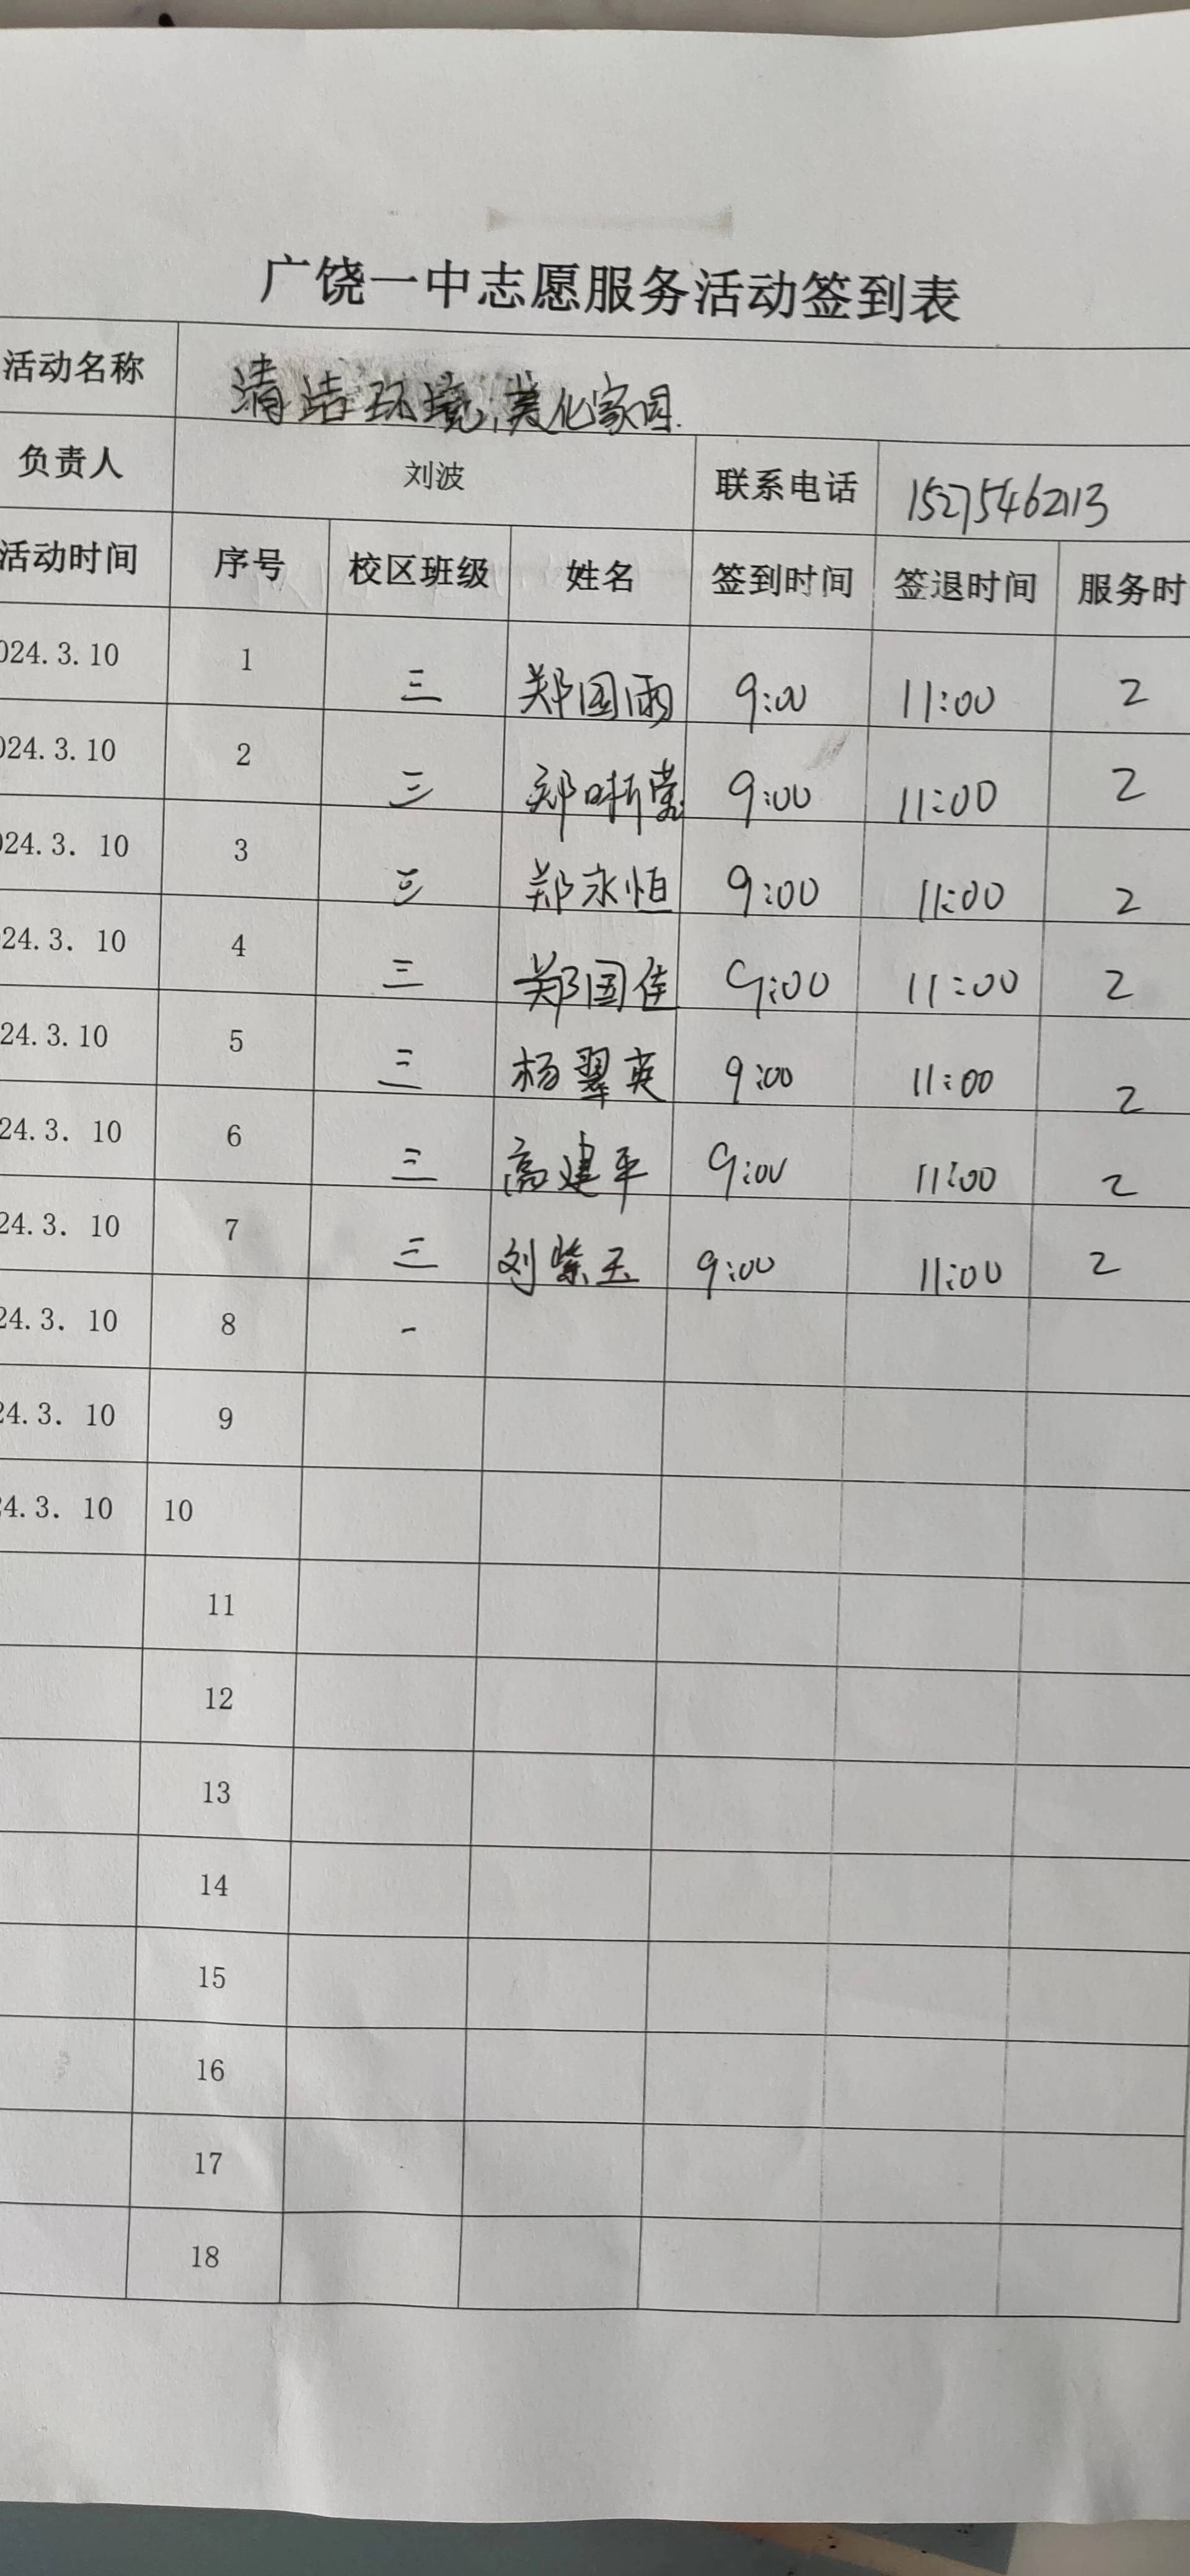 广饶一中志愿服务活动签到表
活动名称 清洁环境,美化家园.
负责人 刘波 联系电话 15275462113
活动时间 序号 校区班级 姓名 签到时间 签退时间 服务时
024.3.10 1 三 郑国雨 9:00 11:00 2
024.3.10 2 三 郑 9:00 11:00 2
024.3. 10 3 三 郑永恒 9:00 11:00 2
24.3. 10 4 三 郑国佳 9:00 11:00 2
24.3.10 5 三 杨翠英 9:00 11:00 2
24.3. 10 6 三 高建平 9:00 11:00 2
24.3. 10 7 三 刘紫玉 9:00 11:00 2
24.3. 10 8 -
24.3. 10 9
24.3. 10 10
11
12
13
14
15
16
17
18